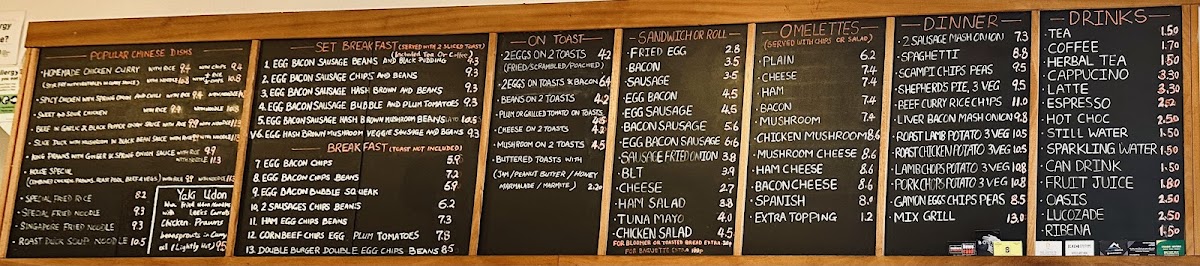 POPULAR CHINESE DISHS
· HOMEMADE CHICKEN CURRY WITH RICE 9.4 WITH CHIPS 9.4
(STIR FRIED WITH VEGETABLES IN CURRY SAUCE) WITH NOODLE 10.3 ½ RICE ½ CHIPS 10.8
· SPICY CHICKEN WITH SPRING ONION AND CHILLI WITH RICE 9.4 WITH NOODLE
· SWEET AND SOUR CHICKEN WITH RICE 9.4 WITH NOODLE 10.3
· BEEF IN GARLIC & BLACK PEPPER ONION SAUCE WITH RICE 9.9 WITH NOODLE 11.3
· SLICE DUCK WITH MUSHROOM IN BLACK BEAN SAUCE WITH RICE WITH NOODLE 11.3
· KING PRAWNS WITH GINGER & SPRING ONION SAUCE WITH RICE 9.9
WITH NOODLE 11.3
· HOUSE SPECIAL
(COMBINED CHICKEN, PRAWNS, ROAST PORK, BEEF & VEG) WITH RICE 9.9 WITH NOODLE 11.3
· SPECIAL FRIED RICE 8.2
· SPECIAL FRIED NOODLE 9.3
· SINGAPORE FRIED NOODLE 9.3
· ROAST DUCK SOUP NOODLE 10.5
Yaki Udon
Wok Fried Udon Noodles
with Leeks Carrots
Chicken Prawns
beansprouts in Curry
oil (Slightly Hot) 9.5
SET BREAKFAST (SERVED WITH 2 SLICED TOAST)
(Included Tea Or Coffee)
1. EGG BACON SAUSAGE BEANS AND BLACK PUDDING 9.3
2. EGG BACON SAUSAGE CHIPS AND BEANS 9.3
3. EGG BACON SAUSAGE HASH BROWN AND BEANS 9.3
4. EGG BACON SAUSAGE BUBBLE AND PLUM TOMATOES 9.3
5. EGG BACON SAUSAGE HASH BROWN MUSHROOM BEANS 10.5
V6. EGG HASH BROWN MUSHROOM VEGGIE SAUSAGE AND BEANS 9.3
BREAKFAST (TOAST NOT INCLUDED)
7. EGG BACON CHIPS 5.9
8. EGG BACON CHIPS BEANS 7.2
9. EGG BACON BUBBLE SQUEAK 6.9
10. 2 SAUSAGES CHIPS BEANS 6.2
11. HAM EGG CHIPS BEANS 7.3
12. CORNBEEF CHIPS EGG PLUM TOMATOES 7.8
13. DOUBLE BURGER DOUBLE EGG CHIPS BEANS 8.5
ON TOAST
· 2 EGGS ON 2 TOASTS 4.2
(FRIED/SCRAMBLED/POACHED)
· 2 EGGS ON TOASTS & BACON 6.4
· BEANS ON 2 TOASTS 4.2
· PLUM OR GRILLED TOMATO ON TOASTS 4.5
· CHEESE ON 2 TOASTS 4.5
· MUSHROOM ON 2 TOASTS 4.5
· BUTTERED TOASTS WITH
(JAM/PEANUT BUTTER/HONEY
MARMALADE/MARMITE) 2.20
SANDWICH OR ROLL
· FRIED EGG 2.8
· BACON 3.5
· SAUSAGE 3.5
· EGG BACON 4.5
· EGG SAUSAGE 4.5
· BACON SAUSAGE 5.6
· EGG BACON SAUSAGE 6.6
· SAUSAGE FRIED ONION 3.8
· BLT 3.9
· CHEESE 2.7
· HAM SALAD 3.8
· TUNA MAYO 4.0
· CHICKEN SALAD 4.5
FOR BLOOMER OR TOASTED BREAD EXTRA 30p
FOR BAGUETTE EXTRA 100p
OMELETTES
(SERVED WITH CHIPS OR SALAD)
· PLAIN 6.2
· CHEESE 7.4
· HAM 7.4
· BACON 7.4
· MUSHROOM 7.4
· CHICKEN MUSHROOM 8.6
· MUSHROOM CHEESE 8.6
· HAM CHEESE 8.6
· BACON CHEESE 8.6
· SPANISH 8.0
· EXTRA TOPPING 1.2
DINNER
· 2 SAUSAGE MASH ONION 7.3
· SPAGHETTI 8.8
· SCAMPI CHIPS PEAS 9.5
· SHEPHERD'S PIE, 3 VEG 9.5
· BEEF CURRY RICE CHIPS 11.0
· LIVER BACON MASH ONION 9.8
· ROAST LAMB POTATO 3 VEG 10.5
· ROAST CHICKEN POTATO 3 VEG 10.5
· LAMB CHOPS POTATO 3 VEG 10.8
· PORK CHOPS POTATO 3 VEG 10.8
· GAMON EGGS CHIPS PEAS 8.5
· MIX GRILL 13.0
DRINKS
· TEA 1.50
· COFFEE 1.70
· HERBAL TEA 1.50
· CAPPUCINO 3.30
· LATTE 3.30
· ESPRESSO 2.52
· HOT CHOC 2.50
· STILL WATER 1.50
· SPARKLING WATER 1.50
· CAN DRINK 1.50
· FRUIT JUICE 1.80
· OASIS 2.50
· LUCOZADE 2.50
· RIBENA 1.50